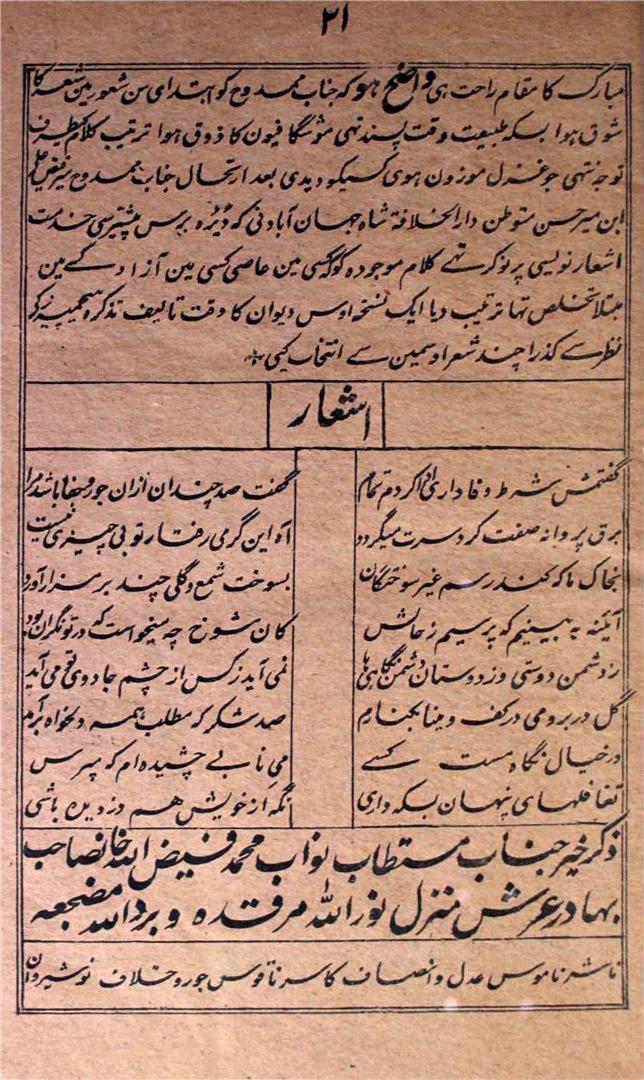 ۲۱
مبارک کا مقام راحت ہی واضح ہو کہ جناب ممدوح کو ابتدای سن شعور مین شعر کا
شوق ہوا بسکہ طبیعت وقت پسند تہی موشگافیون کا ذوق ہوا ترتیب کلام کیطرف
توجہ نتہی جو غزل موزون ہوی کسیکو دیدی بعد ارتحال جناب ممدوح میر فیض علی
ابن میر حسن متوطن دار الخلافۃ شاہ جہان آباد نی کہ ڈیڑہ برس پیشتر سی خدمت
اشعار نویسی پر نوکر تہے کلام موجودہ کو کہ کسی مین عاصی کسی مین آزاد کے مین
مبتلا تخلص تہا ترتیب دیا ایک نسخہ اوس دیوان کا وقت تالیف تذکرہ ہیچمیرز کی
نظر سے گذرا چند شعر اوسمین سے انتخاب کیی
اشعار
گفتمش شرط وفاداری ادا کردم تمام گفت صد چندان ازان جور و جفا باشد مرا
برق پروانہ صفت گرد سرت میگردد آہ این گرمی رفتار تو بی چیزی نیست
بخاک ما کہ کند رسم غیر سوختگان بسوخت شمع و گلی چند بر مزار آورد
آئینہ بہ بینیم کہ پرسیم ز حالش کان شوخ چہ میخواست کہ در تو نگران بود
ز دشمن دوستی وز دوستان دشمن نگاہی ہا نمی آید ز کس از چشم جادوی تو می آید
گل در بر و می در کف و مینا بکنارم صد شکر کہ مطلب ہمہ دلخواہ برآمد
در خیال نگاہ مست کسے می نابے چشیدہ ام کہ مپرس
تغافلہای پنہان بسکہ داری نگہ از خویش ہم دزدیدہ باشی
ذکر خیر جناب مستطاب نواب محمد فیض اللہ خانصاحب
بہادر عرش منزل نور اللہ مرقدہ و برد اللہ مضجعہ
ناشر ناموس عدل و انصاف کاسر ناقوس جور و خلاف نوشیروان